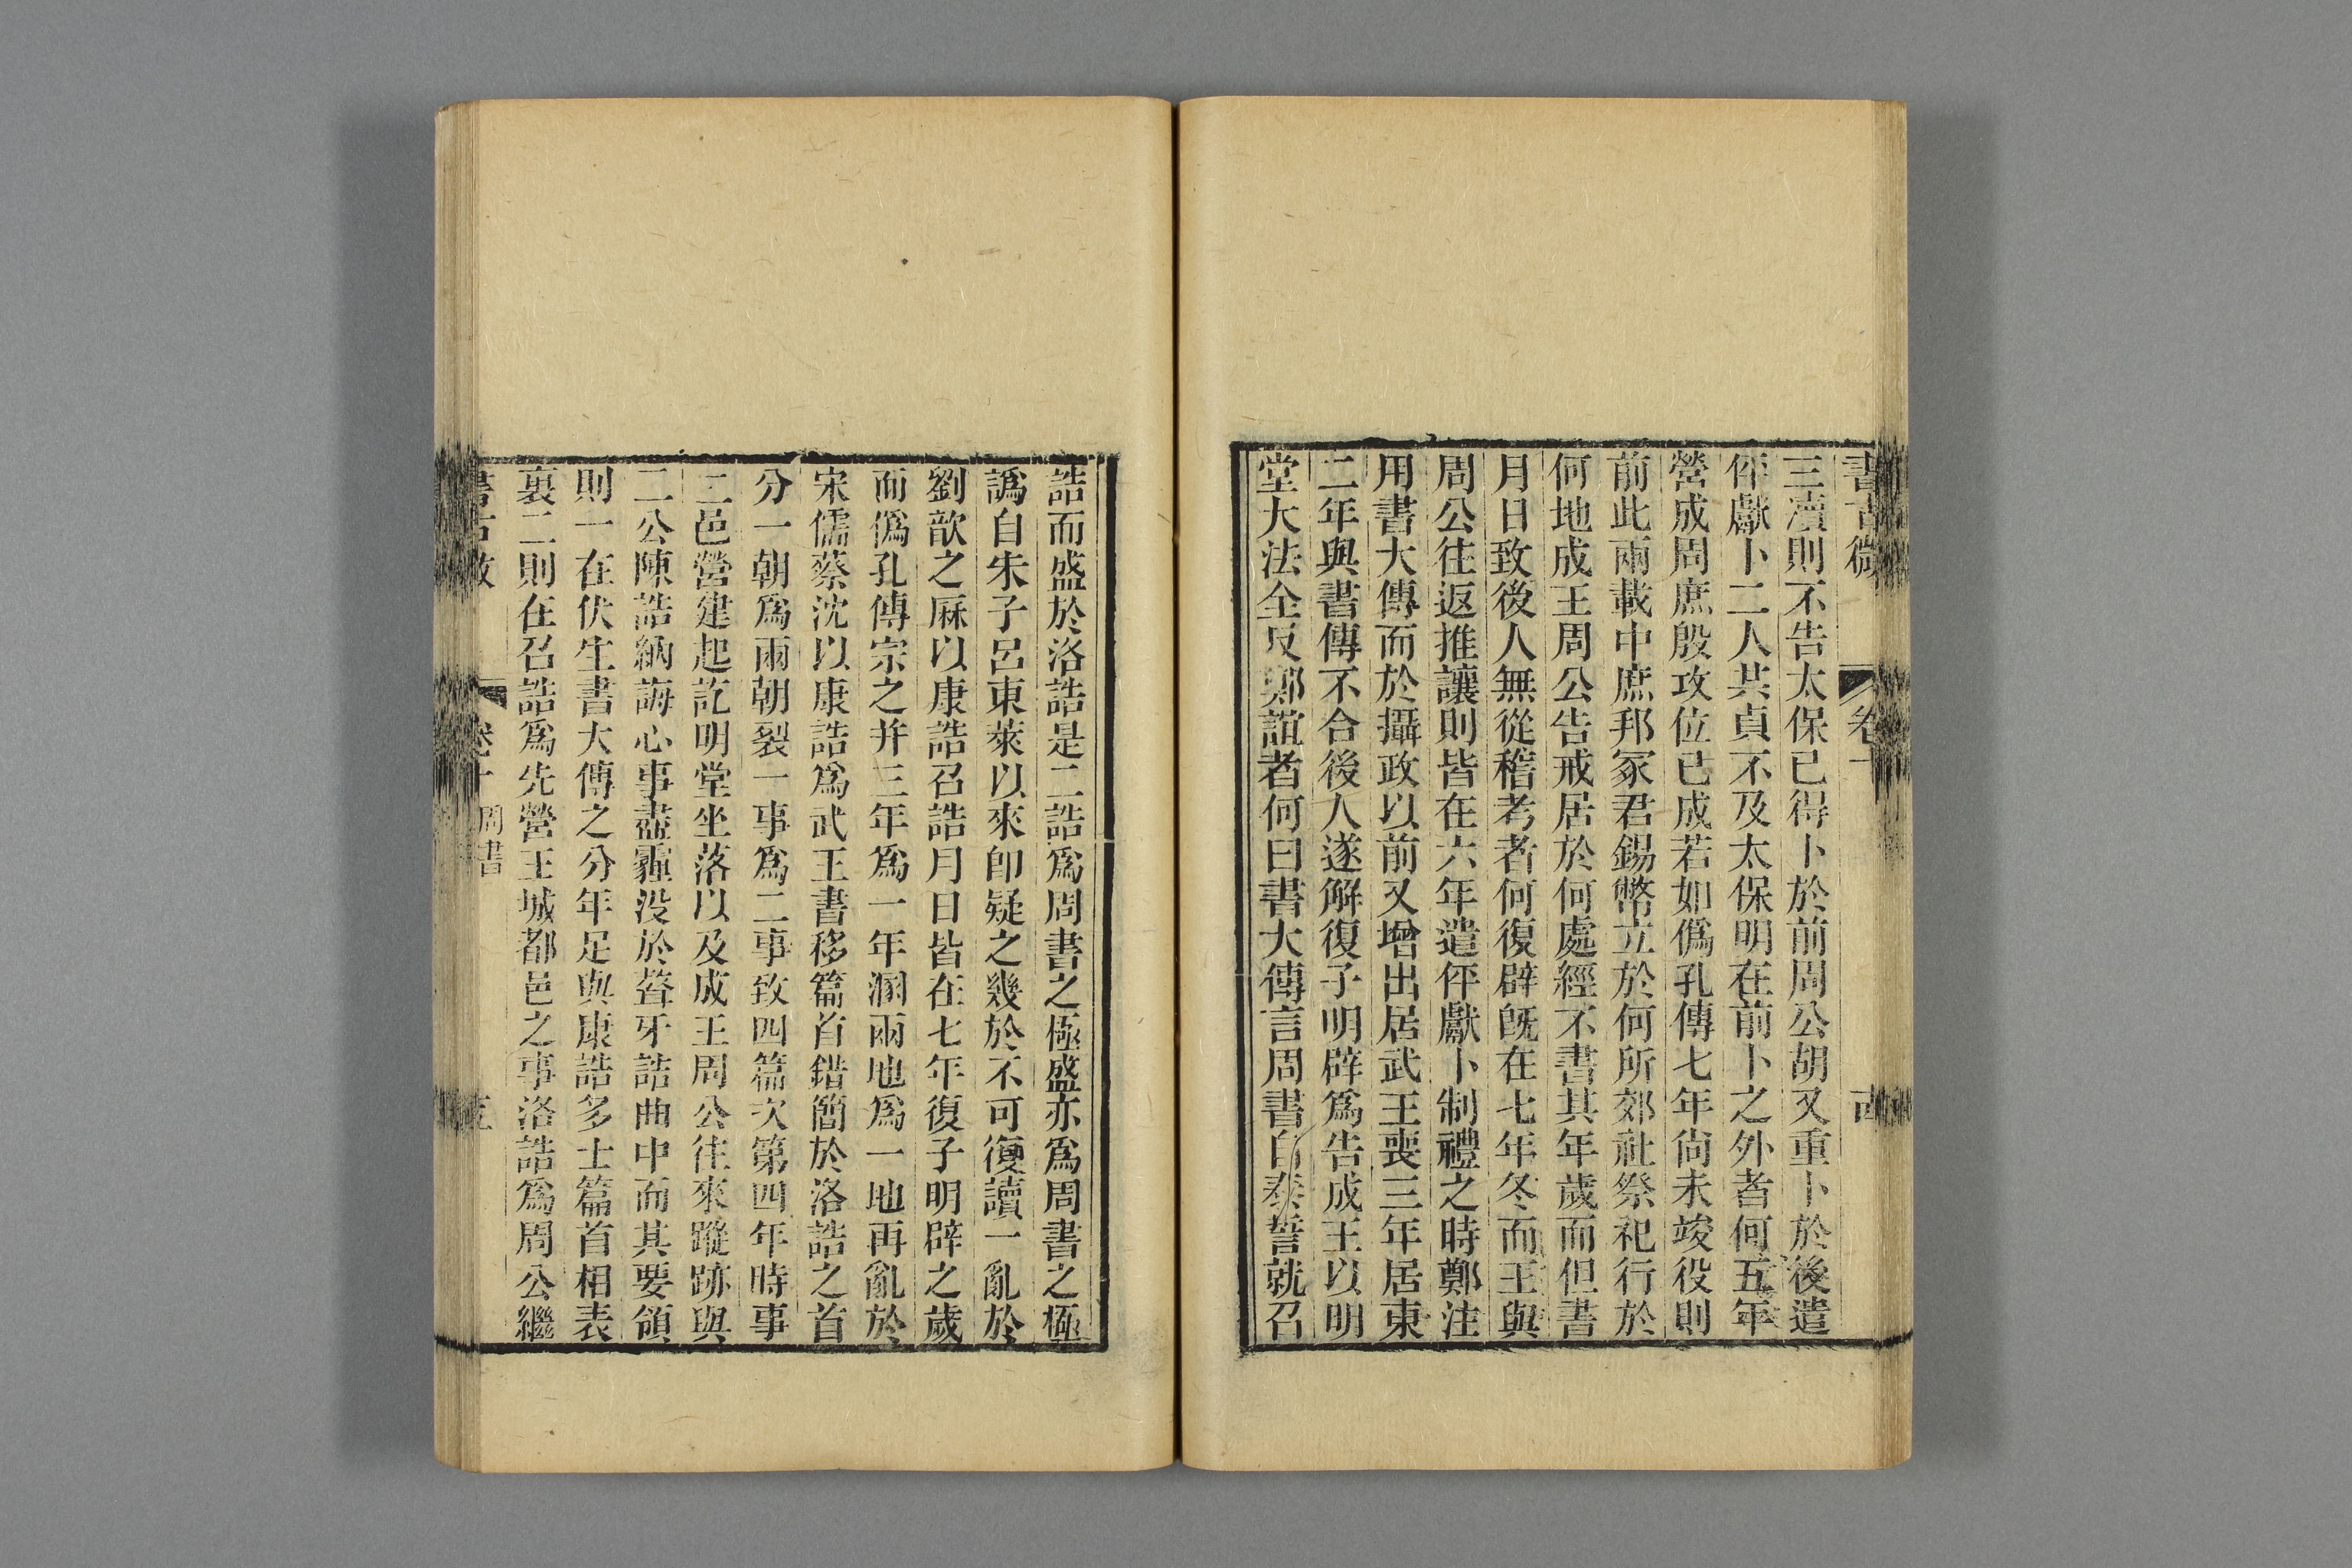 書古微
卷十
三瀆則不告太保已得卜於前周公胡又重卜於後遣
伻獻卜二人共貞不及太保明在前卜之外者何五年
營成周庶殷攻位已成若如僞孔傳七年尙未竣役則
前此兩載中庶邦冢君錫幣立於何所郊社祭祀行於
何地成王周公告戒居於何處經不書其年歲而但書
月日致後人無從稽考者何復辟旣在七年冬而王與
周公往返推讓則皆在六年遣伻獻卜制禮之時鄭注
用書大傳而於攝政以前又增出居武王喪三年居東
二年與書傳不合後人遂解復子明辟爲告成王以明
堂大法全反鄭誼者何曰書大傳言周書自泰誓就召
誥而盛於洛誥是二誥爲周書之極盛亦爲周書之極
譌自朱子呂東萊以來卽疑之幾於不可復讀一亂於
劉歆之厤以康誥召誥月日皆在七年復子明辟之歲
而僞孔傳宗之并三年爲一年溷兩地爲一地再亂於
宋儒蔡沈以康誥爲武王書移篇首錯簡於洛誥之首
分一朝爲兩朝裂一事爲二事致四篇次第四年時事
二邑營建起訖明堂坐落以及成王周公往來蹤跡與
二公陳誥納誨心事盡霾没於聱牙誥曲中而其要領
則一在伏生書大傳之分年足與康誥多士篇首相表
裏二則在召誥爲先營王城都邑之事洛誥爲周公繼
書古微
卷十
周書